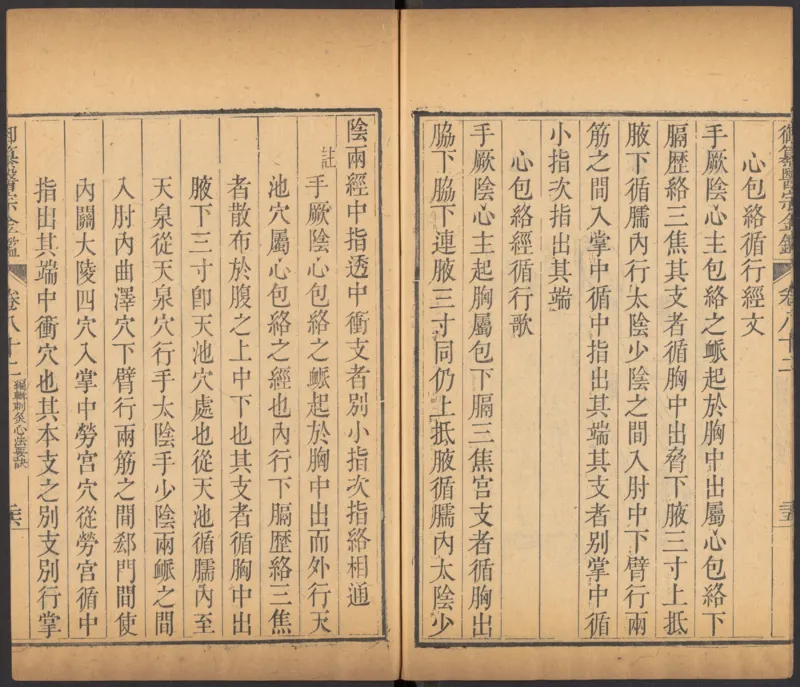 御纂醫宗金鑑 卷八十二 三五
心包絡循行經文
手厥陰心主包絡之䘑起於胸中出屬心包絡下
膈歷絡三焦其支者循胸中出脅下腋三寸上抵
腋下循臑內行太陰少陰之間入肘中下臂行兩
筋之間入掌中循中指出其端其支者別掌中循
小指次指出其端
心包絡經循行歌
手厥陰心主起胸屬包下膈三焦宮支者循胸出
脇下脇下連腋三寸同仍上抵腋循臑內太陰少
陰兩經中指透中衝支者別小指次指絡相通
註 手厥陰心包絡之經起於胸中出而外行天
池穴屬心包絡之經也內行下膈歷絡三焦
者散布於腹之上中下也其支者循胸中出
腋下三寸卽天池穴處也從天池循臑內至
天泉從天泉穴行手太陰手少陰兩䘑之間
入肘內曲澤穴下臂行兩筋之間郄門間使
內關大陵四穴入掌中勞宮穴從勞宮循中
指出其端中衝穴也其本支之別支別行掌
御纂醫宗金鑑 卷八十二 編輯刺灸心法要訣 三六